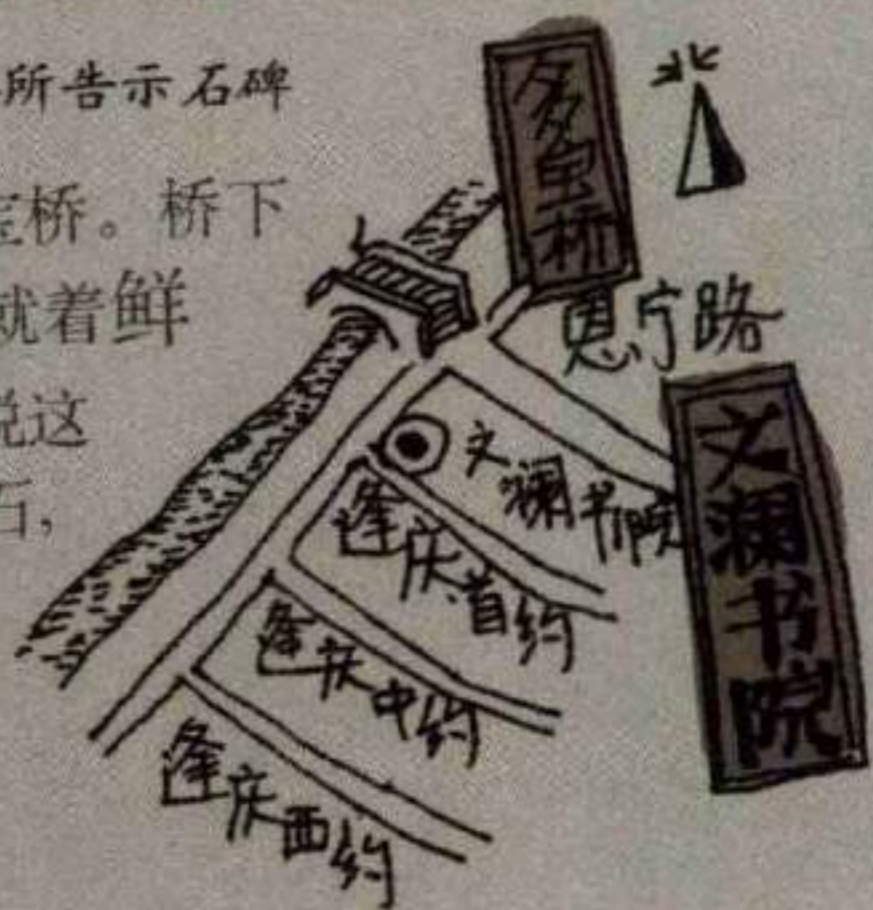 所告示石碑
宝桥。桥下
就着鲜
说这
石，
多宝桥
北
恩宁路
文澜书院
文澜书院
逢庆首约
逢庆中约
逢庆西约